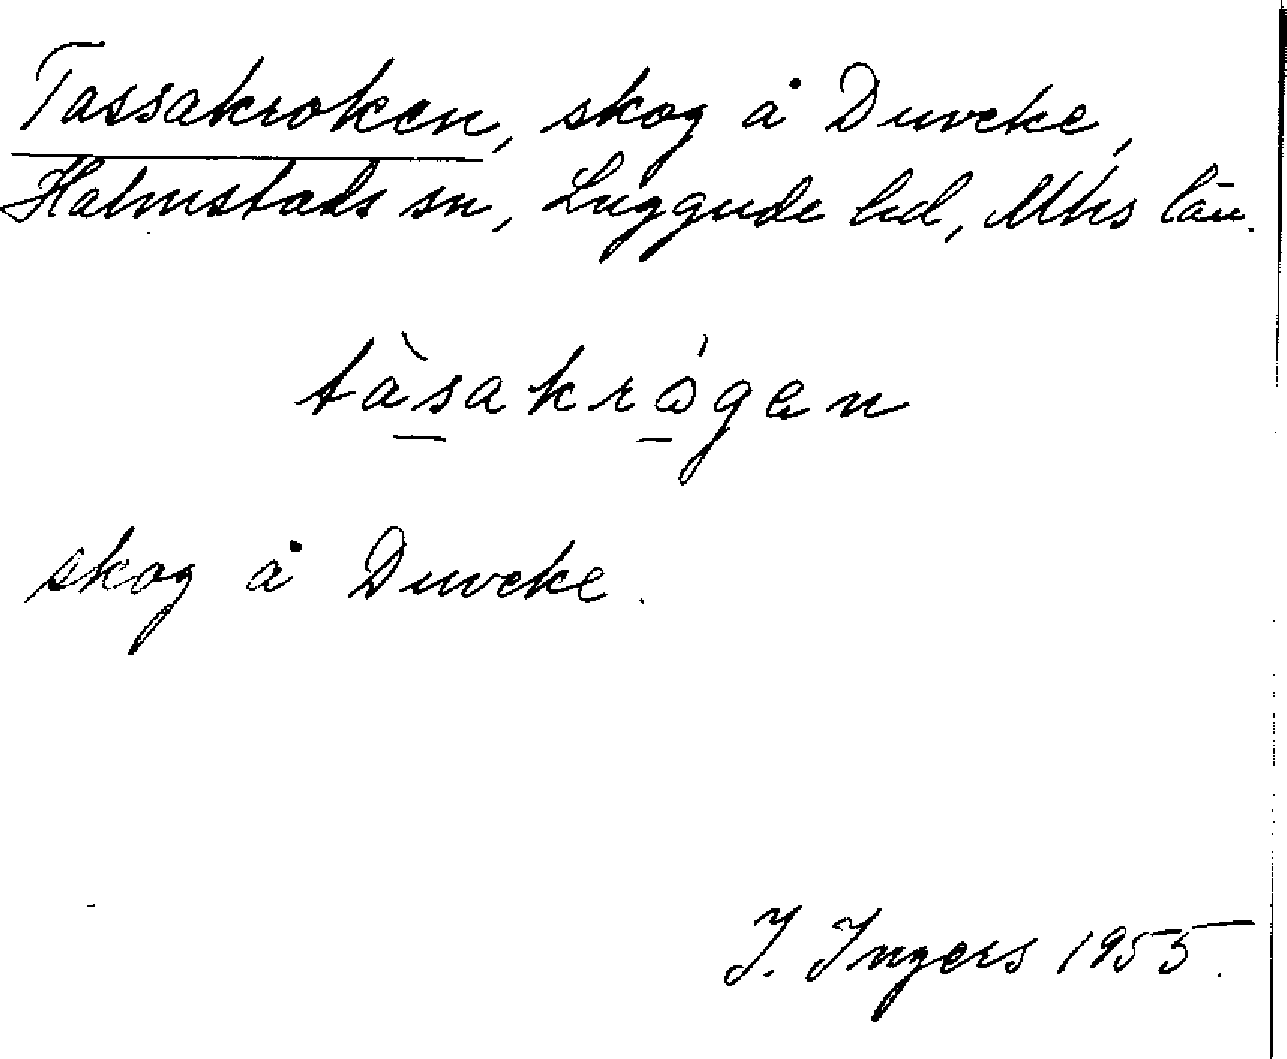 Tassakroken, skog å Duveke,
Halmstads sn, Luggude hd, Mhs län.
tàsakrógen
skog å Duveke.
I. Ingers 1955.